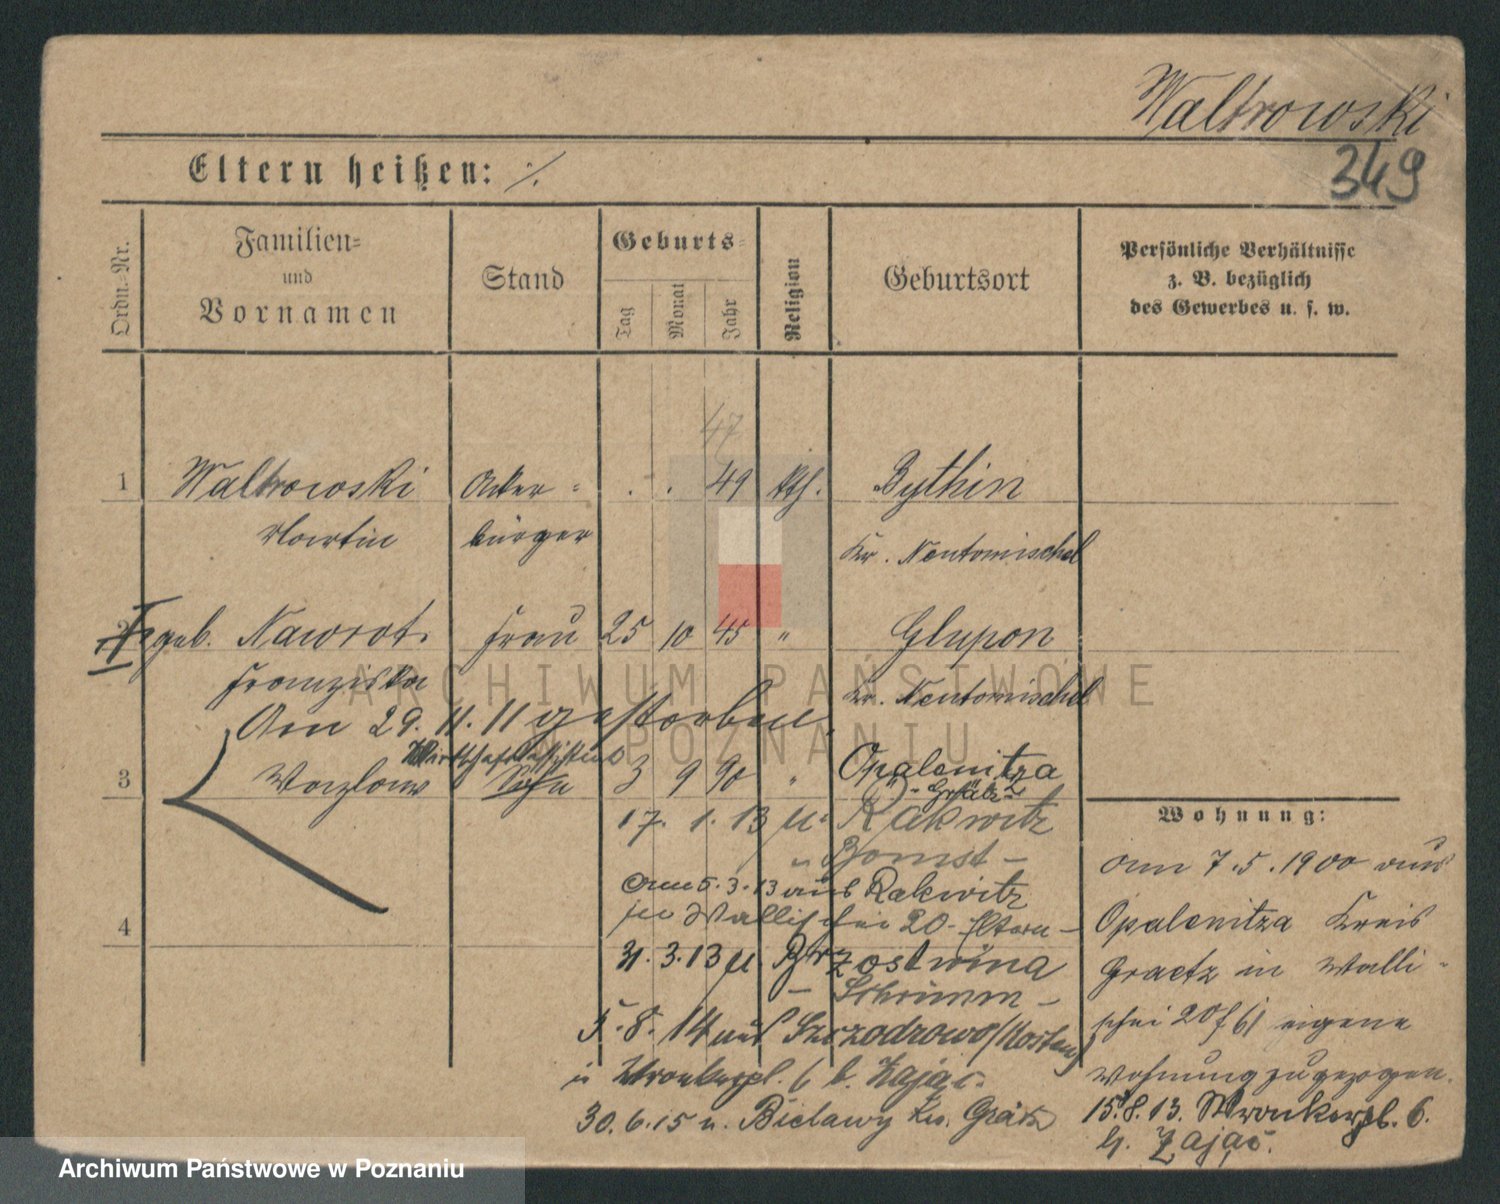 Waltrowski
349
Eltern heißen: ·/.
Ordn.-Nr.
Familien-
und
Vornamen
Stand
Geburts-
Tag
Monat
Jahr
Religion
Geburtsort
Persönliche Verhältnisse
z. B. bezüglich
des Gewerbes u. s. w.
47
1 Waltrowski Acker- . . 49 kth. Bythin
Martin bürger Kr. Neutomischel
2 geb. Nawrot. Frau 25 10 45 " Glupon
Franziska Kr. Neutomischel
Am 29. 11. 11 gestorben.
3 Wazlaw Sohn 3 9 90 " Opalenitza
Grätz
17. 1. 13 n. Rakwitz
Bomst
am 5. 3. 13 aus Rakwitz
in Wallischei 20 - Eltern -
4
31. 3. 13 n. Brzostwina
- Schrimm -
5. 8. 14 aus Szczodrowo (Kosten)
in Wronkerpl. 6 b. Zając.
30. 6. 15 n. Bielawy Kr. Grätz
Wohnung:
am 7. 5. 1900 aus
Opalenitza Kreis
Graetz in Walli-
schei 20 eigene
Wohnung zugezogen.
15. 8. 13. Wronkerpl. 6.
b. Zając.
ARCHIWUM PAŃSTWOWE
W POZNANIU
Archiwum Państwowe w Poznaniu